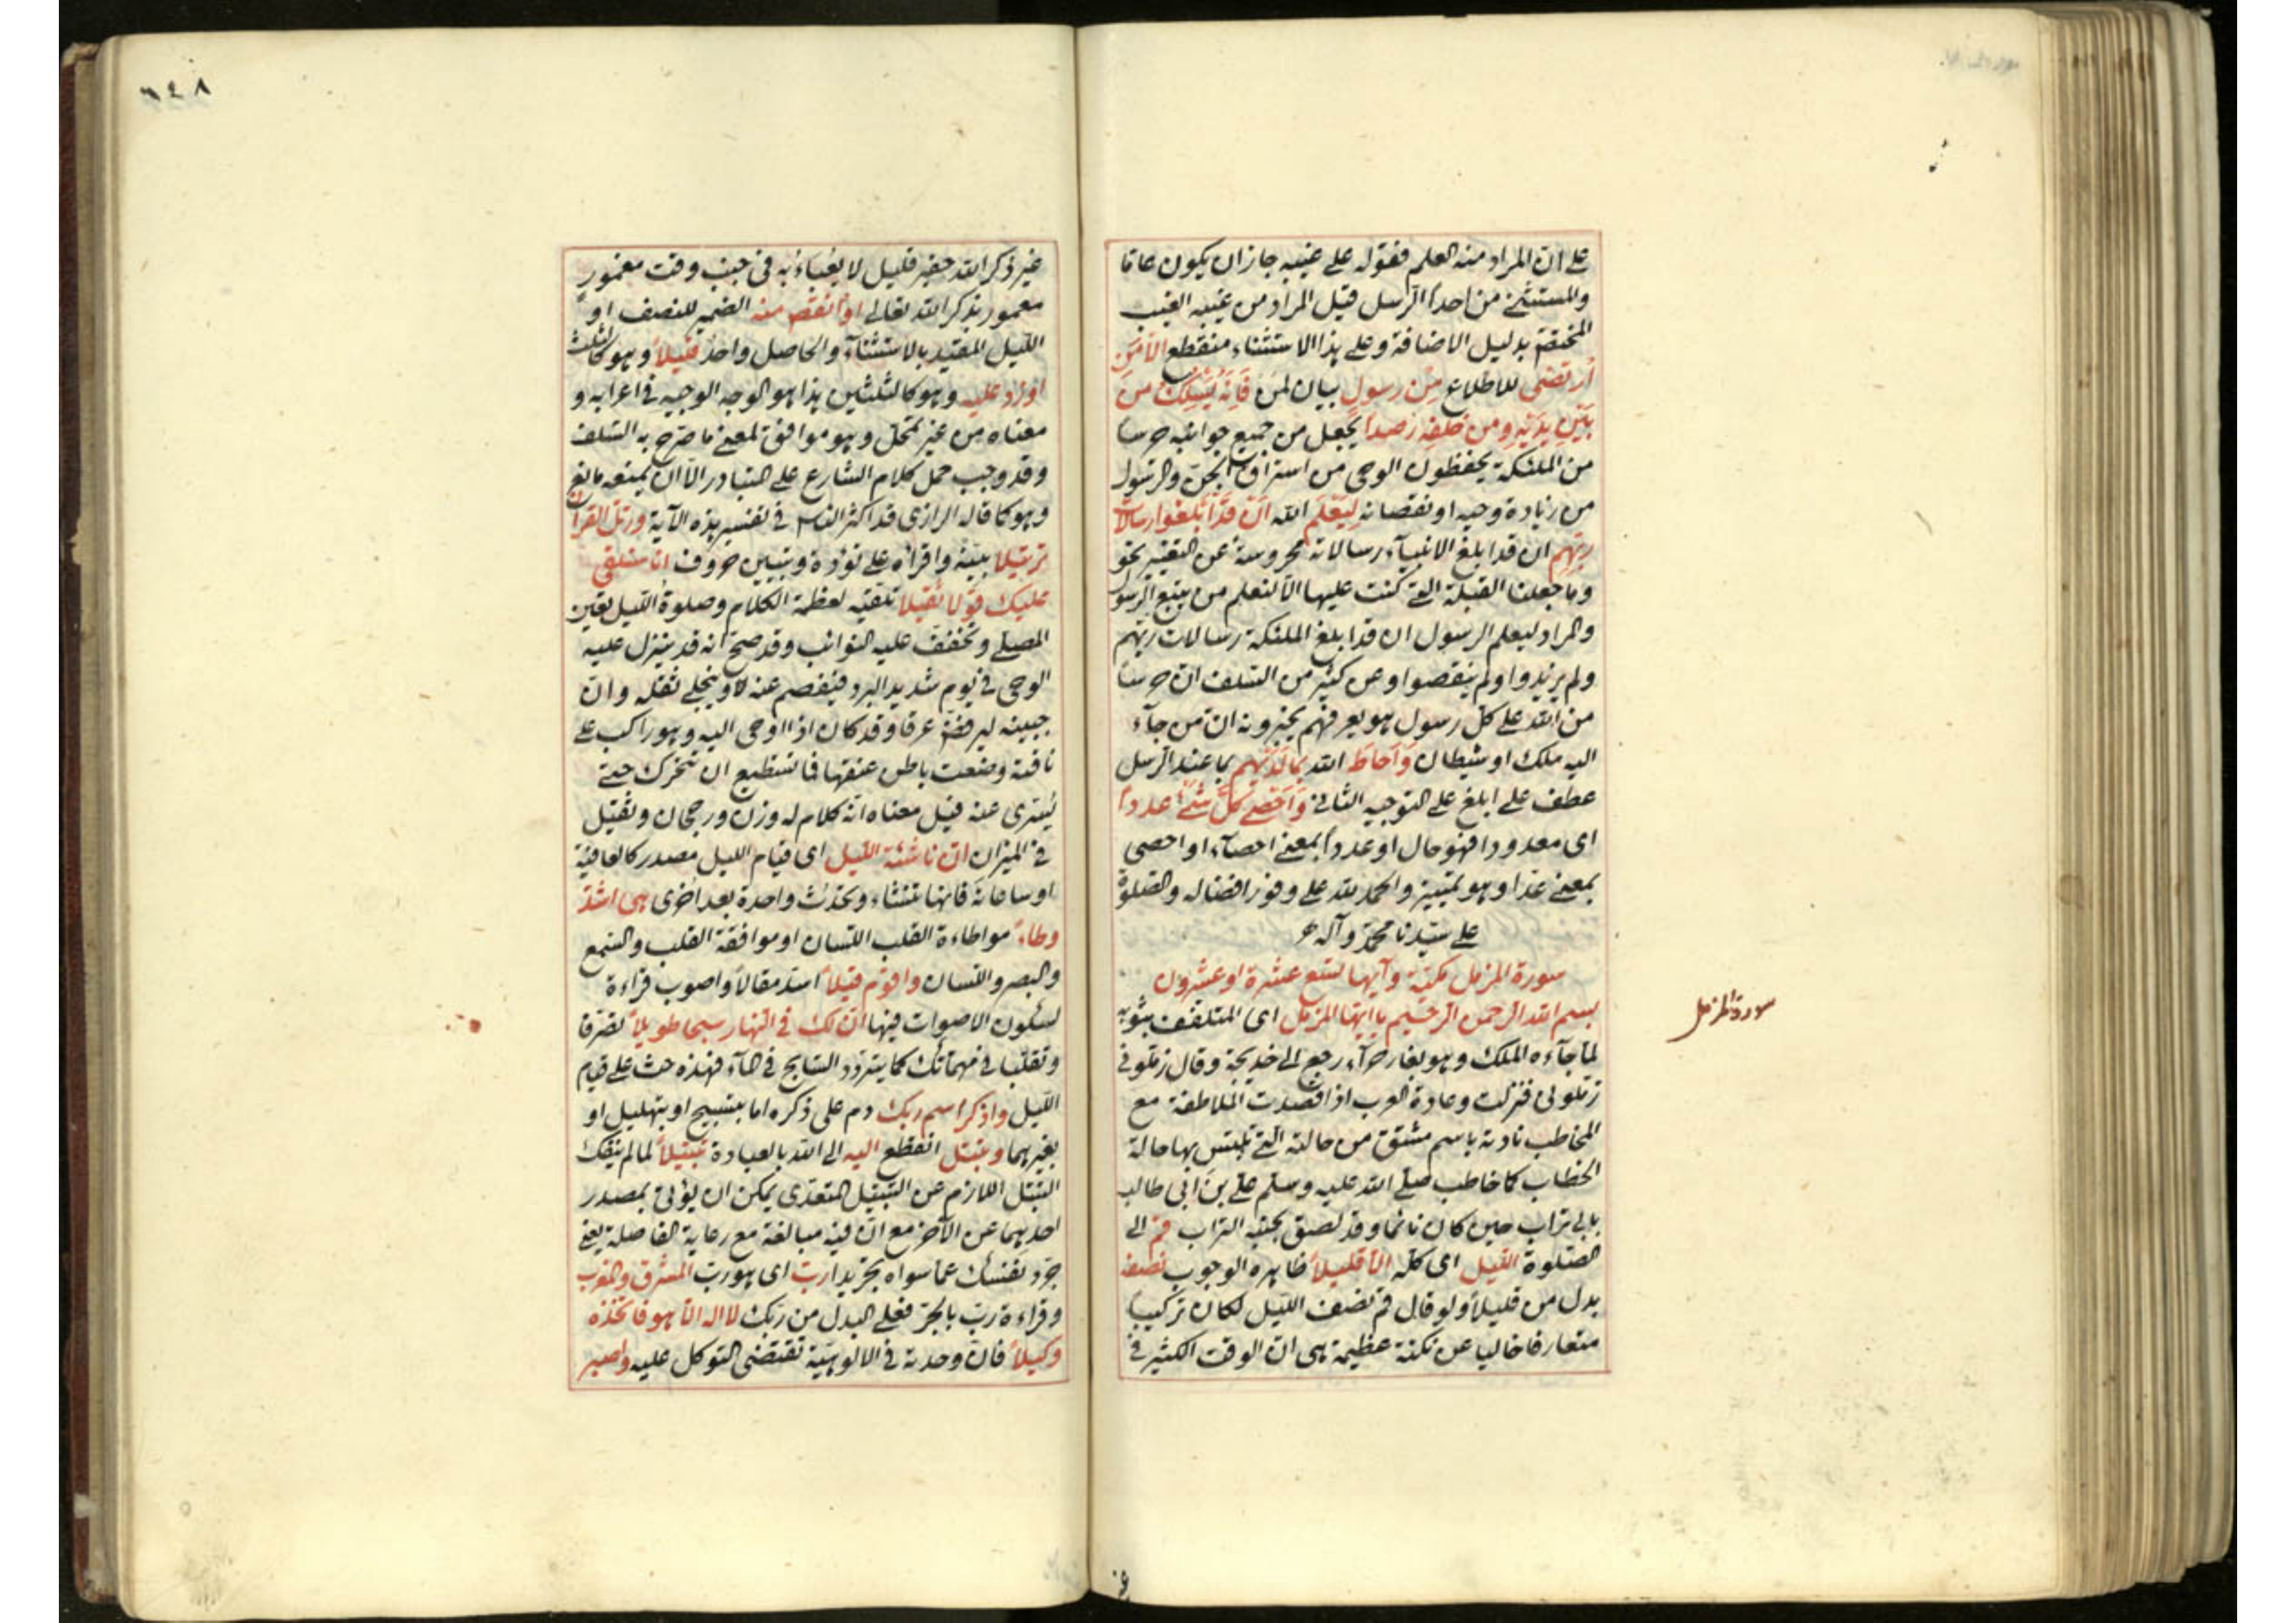 على ان المراد منه العلم فقوله على غيبه جاز ان يكون عاما
والمستثنى من احدا الرسل قيل المراد من غيبه الغيب
المختص به بدليل الاضافة وعلى هذا الاستثناء منقطع الا من
ارتضى للاطلاع من رسول بيان لمن فانه يسلك من
بين يديه ومن خلفه رصدا يجعل من جميع جوانبه حرسا
من الملئكة يحفظون الوحى من استراق الجن والرسول
من زيادة وحيه او نقصانه ليعلم الله ان قد ابلغوا رسالات
ربهم ان قد ابلغ الانبيآء رسالاته محروسة عن التغيير نحو
وما جعلنا القبلة التى كنت عليها الا لنعلم من يتبع الرسول
والمراد ليعلم الرسول ان قد ابلغ الملئكة رسالات ربهم
ولم يزيدوا ولم ينقصوا وعن كثير من السلف ان حرسا
من الله على كل رسول هو يعرفهم يخبرونه ان من جآء
اليه ملك او شيطان وَاَحاطَ الله بما لديهم بما عند الرسل
عطف على ابلغ على التوجيه الثانى وَاَحْصى كلَّ شئ عددا
اى معدودا فهو حال او عددا بمعنى احصآء او احصى
بمعنى عدّ او هو تمييز والحمد لله على وفور افضاله والصلوة
على سيّدنا محمّد وآله
سورة المزمل مكيّة وآيها تسع عشرة او عشرون
بسم الله الرحمن الرحيم يا ايها المزمل اى المتلفف بثوبه
لما جآءه الملك وهو بغار حرآء رجع الى خديجة وقال زملونى
زملونى فنزلت وعادة العرب اذا قصدت الملاطفة مع
المخاطب نادته باسم مشتق من حالته التى تلبّس بها حالة
الخطاب كما خاطب صلى الله عليه وسلم على بن ابى طالب
بابى تراب حين كان نائما وقد لصق بجنبه التراب قم الى
الصلوة الليل اى كله الّا قليلاً ظاهره الوجوب نصفه
بدل من قليلاً ولو قال قم نصف الليل لكان تركيبا
متعارفا خاليا عن نكتة عظيمة هى ان الوقت الكثير فى
سورة المزمل
٦٤٨
غير ذكر الله حقير قليل لا يعباء به فى جنب وقت مغمور
معمور بذكر الله تعالى او انقص منه الضمير للنصف او
الليل المقيد بالاستثنآء والحاصل واحد قليلاً وهو كالثلث
او زد عليه وهو كالثلثين هذا هو الوجه الوجيه فى اعرابه و
معناه من غير تمحّل وهو موافق لمعنى ما صرّح به السلف
وقد وجب حمل كلام الشارع على المتبادر الا ان يمنعه مانع
وهو كما قاله الرازى قد اكثر الناس فى تفسير هذه الآية ورتل القرآن
ترتيلا بيّنه واقرأه على تؤدة وتبيين حروف انا سنلقى
عليك قولا ثقيلا تلقيه لعظمة الكلام وصلوة الليل تعين
المصلى وتخفف عليه النوائب وقد صحّ انه قد ينزل عليه
الوحى فى يوم شديد البرد فيفصم عنه وينجلى ثقله وان
جبينه ليرفضّ عرقا وقد كان اذا اوحى اليه وهو راكب على
ناقته وضعت باطن عنقها فما تستطيع ان تتحرك حتى
يُسَرّى عنه قيل معناه انه كلام له وزن ورجحان وثقيل
فى الميزان انّ ناشئة الليل اى قيام الليل مصدر كالعافية
او ساعاته فانها تنشاء وتحدُث واحدة بعد اخرى هى اشدّ
وطاءً مواطاءة القلب اللسان او موافقة القلب والسمع
والبصر واللسان واقوم قيلاً اسدّ مقالاً واصوب قراءة
لسكون الاصوات فيها انّ لك فى النهار سبحا طويلاً تصرّفا
وتقلّبا فى مهماتك كما يتردّد السابح فى المآء فهذه حث على قيام
الليل واذكر اسم ربك دم على ذكره اما بتسبيح او بتهليل او
بغيرهما وتبتل انقطع اليه الى الله بالعبادة تبتيلاً لما لم ينفك
التبتل اللازم عن التبتيل المتعدّى يمكن ان يؤتى بمصدر
احدهما عن الآخر مع انّ فيه مبالغة مع رعاية الفاصلة يعنى
جرّد نفسك عما سواه تجريدا ربّ اى هو ربّ المشرق والمغرب
وقراءة ربّ بالجرّ فعلى البدل من ربك لا اله الّا هو فاتخذه
وكيلاً فانّ وحدته فى الالوهيّة تقتضى التوكل عليه واصبر